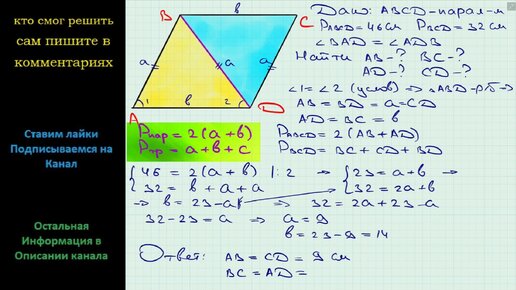 кто смог решить
сам пишите в
комментариях
Ставим лайки
Подписываемся на
Канал
Остальная
Информация в
Описании канала
B
в
C
a
a
a
1
в
2
A
D
Pпар = 2(a+в)
Pтр = a+в+c
Дано: ABCD-парал-м
PABCD=46см PBCD=32см
∠BAD = ∠ADB
Найти AB-? BC-?
AD-? CD-?
∠1=∠2 (услов) ⇒ △ABD-р/б ⇒
AB = BD = a = CD
AD = BC = в
PABCD = 2(AB+AD)
PBCD = BC + CD + BD
{46 = 2(a+в) |:2 → {23 = a+в →
32 = в+a+a 32 = 2a+в
→ в = 23-a 32 = 2a+23-a
32-23 = a ⇒ a = 9
в = 23-9 = 14
Ответ: AB = CD = 9 см
BC = AD =